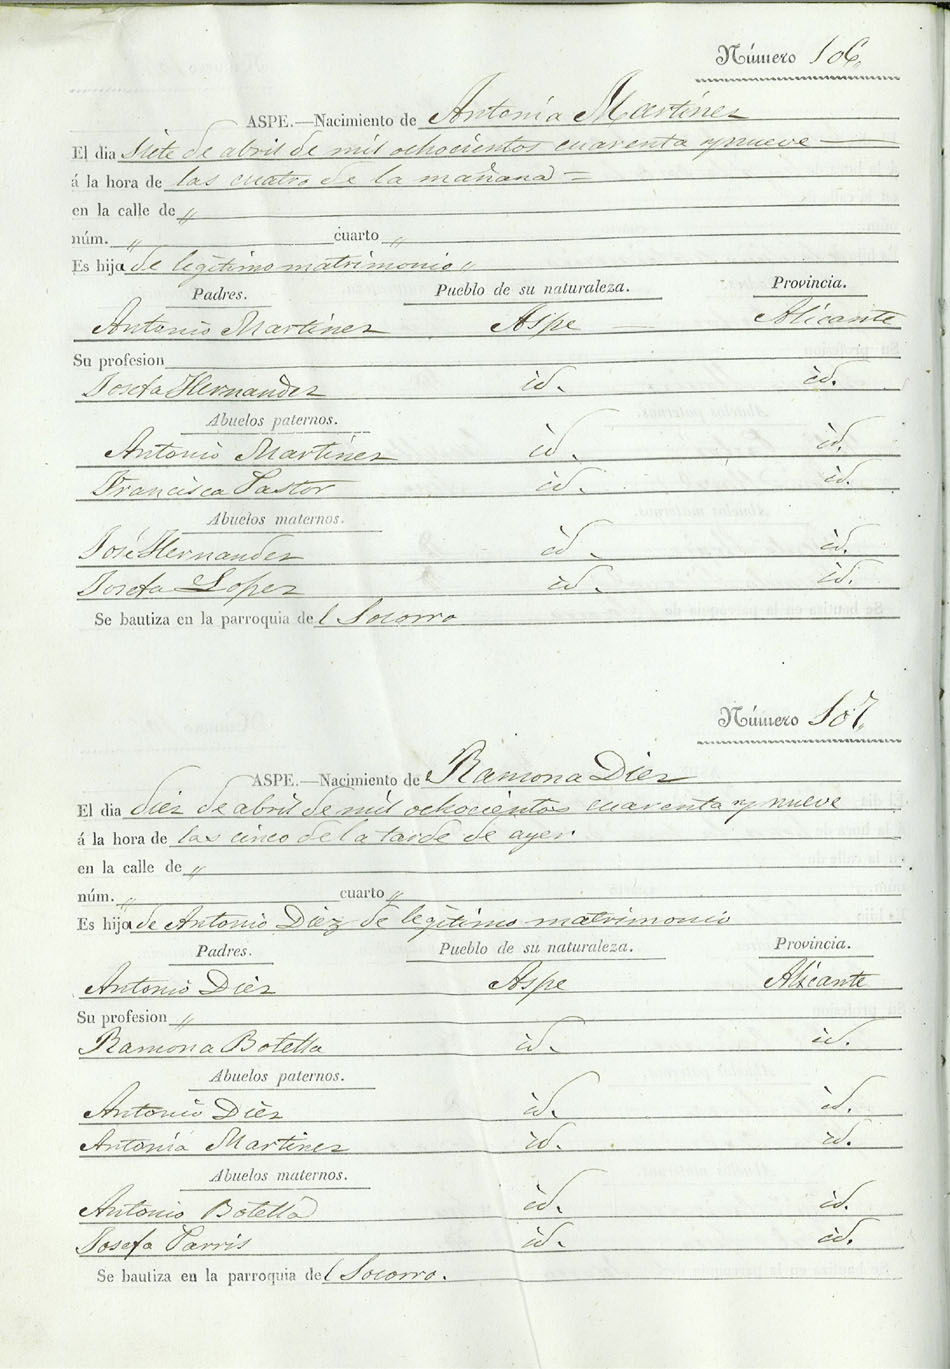 Número 106.
ASPE.—Nacimiento de Antonia Martinez
El dia siete de abril de mil ochocientos cuarenta y nueve —
á la hora de las cuatro de la mañana =
en la calle de "
núm. " cuarto "
Es hija de legítimo matrimonio "
Padres. Pueblo de su naturaleza. Provincia.
Antonio Martinez Aspe Alicante
Su profesion
Josefa Hernandez id. id.
Abuelos paternos.
Antonio Martinez id. id.
Francisca Pastor id. id.
Abuelos maternos.
José Hernandez id. id.
Josefa Lopez id. id.
Se bautiza en la parroquia del Socorro
Número 107.
ASPE.—Nacimiento de Ramona Diez
El dia diez de abril de mil ochocientos cuarenta y nueve
á la hora de las cinco de la tarde de ayer.
en la calle de "
núm. " cuarto "
Es hija de Antonio Diez de legítimo matrimonio
Padres. Pueblo de su naturaleza. Provincia.
Antonio Diez Aspe Alicante
Su profesion "
Ramona Botella id. id.
Abuelos paternos.
Antonio Diez id. id.
Antonia Martinez id. id.
Abuelos maternos.
Antonio Botella id. id.
Josefa Parris id. id.
Se bautiza en la parroquia del Socorro.